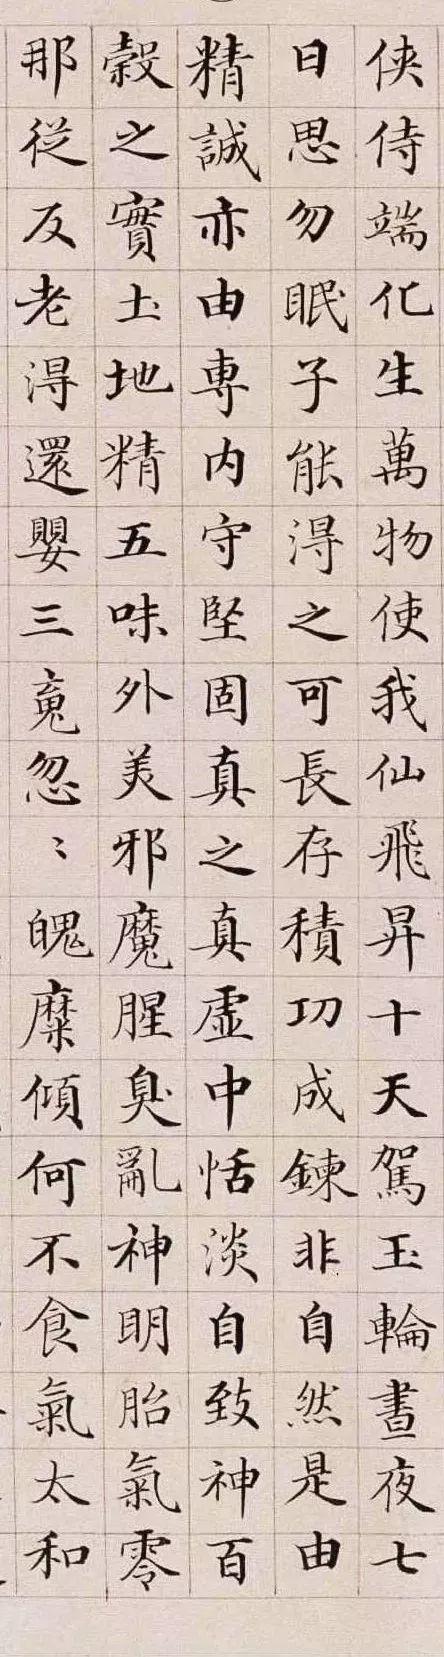 侠侍端化生萬物使我仙飛昇十天駕玉輪晝夜七
日思勿眠子能淂之可長存積功成鍊非自然是由
精誠亦由専内守堅固真之真虛中恬淡自致神百
穀之實土地精五味外美邪魔腥臭亂神明胎氣零
那從反老淂還嬰三䰟忽〻魄糜傾何不食氣太和